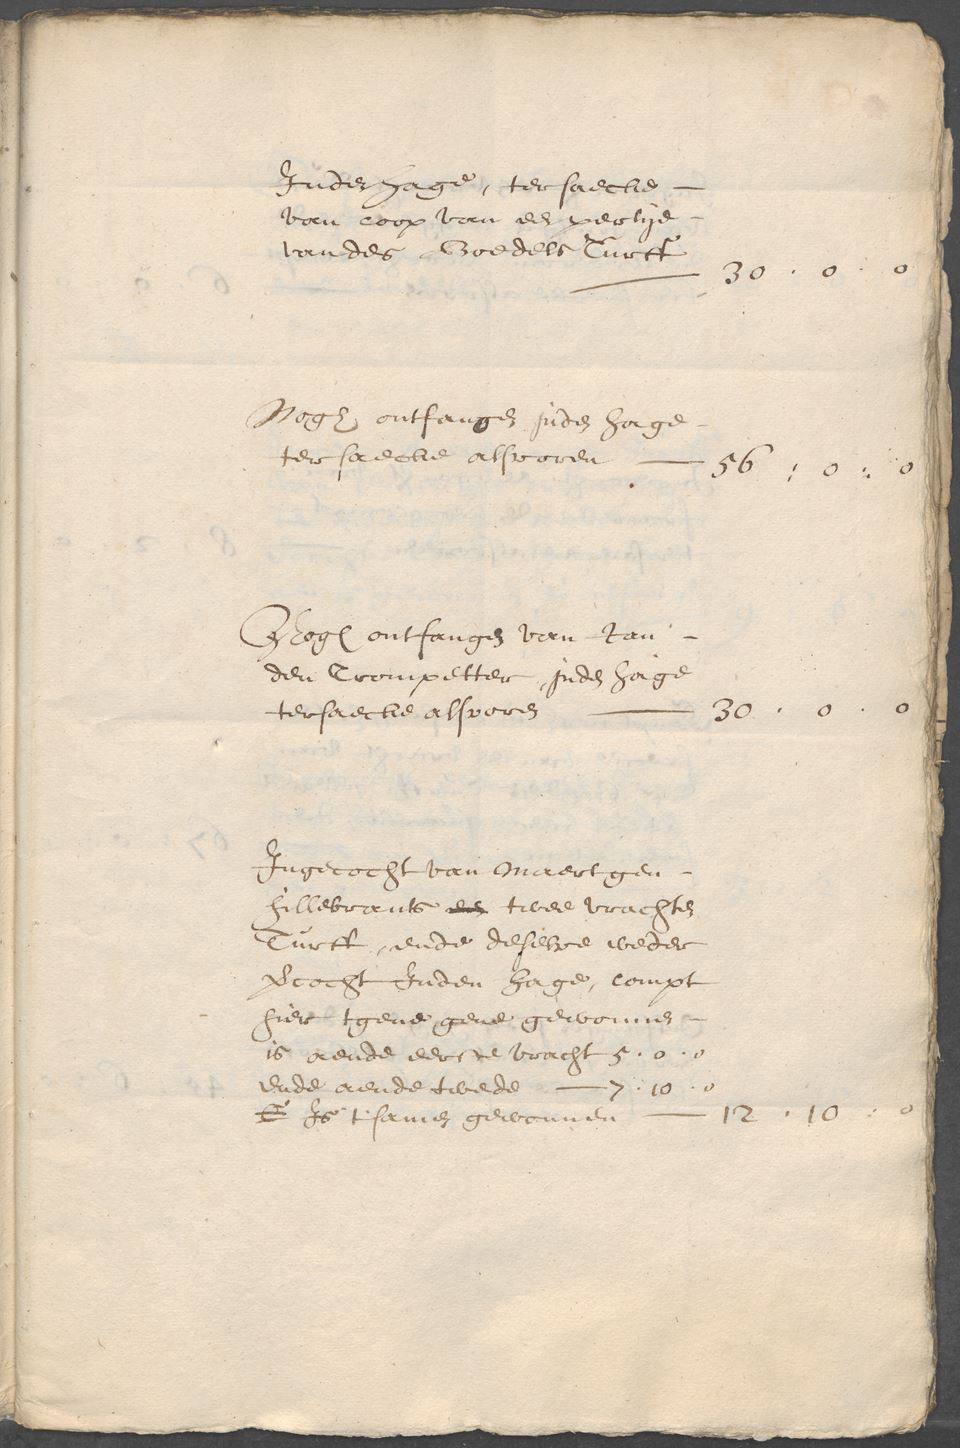 Inden hage, ter saecke -
van coop van een pertije -
vandes Boedels Turff
30 . 0 . 0
Nogh ontfangen inden hage -
ter saecke alsvoren — 56 : 0 : 0
Nogh ontfangen van Jan -
den Trompetter, inden hage
tersaecke alsvoren — 30 . 0 . 0
Ingecocht van Maertgen -
hillebrants en twee vrachten
Turff, ende deselve weder
vercocht Inden hage, compt
hier tgene gene gewonnen -
is aende eerste vracht 5 . 0 . 0
ende aende twede — 7 . 10 . 0
E Is t'samen gewonnen — 12 . 10 : 0